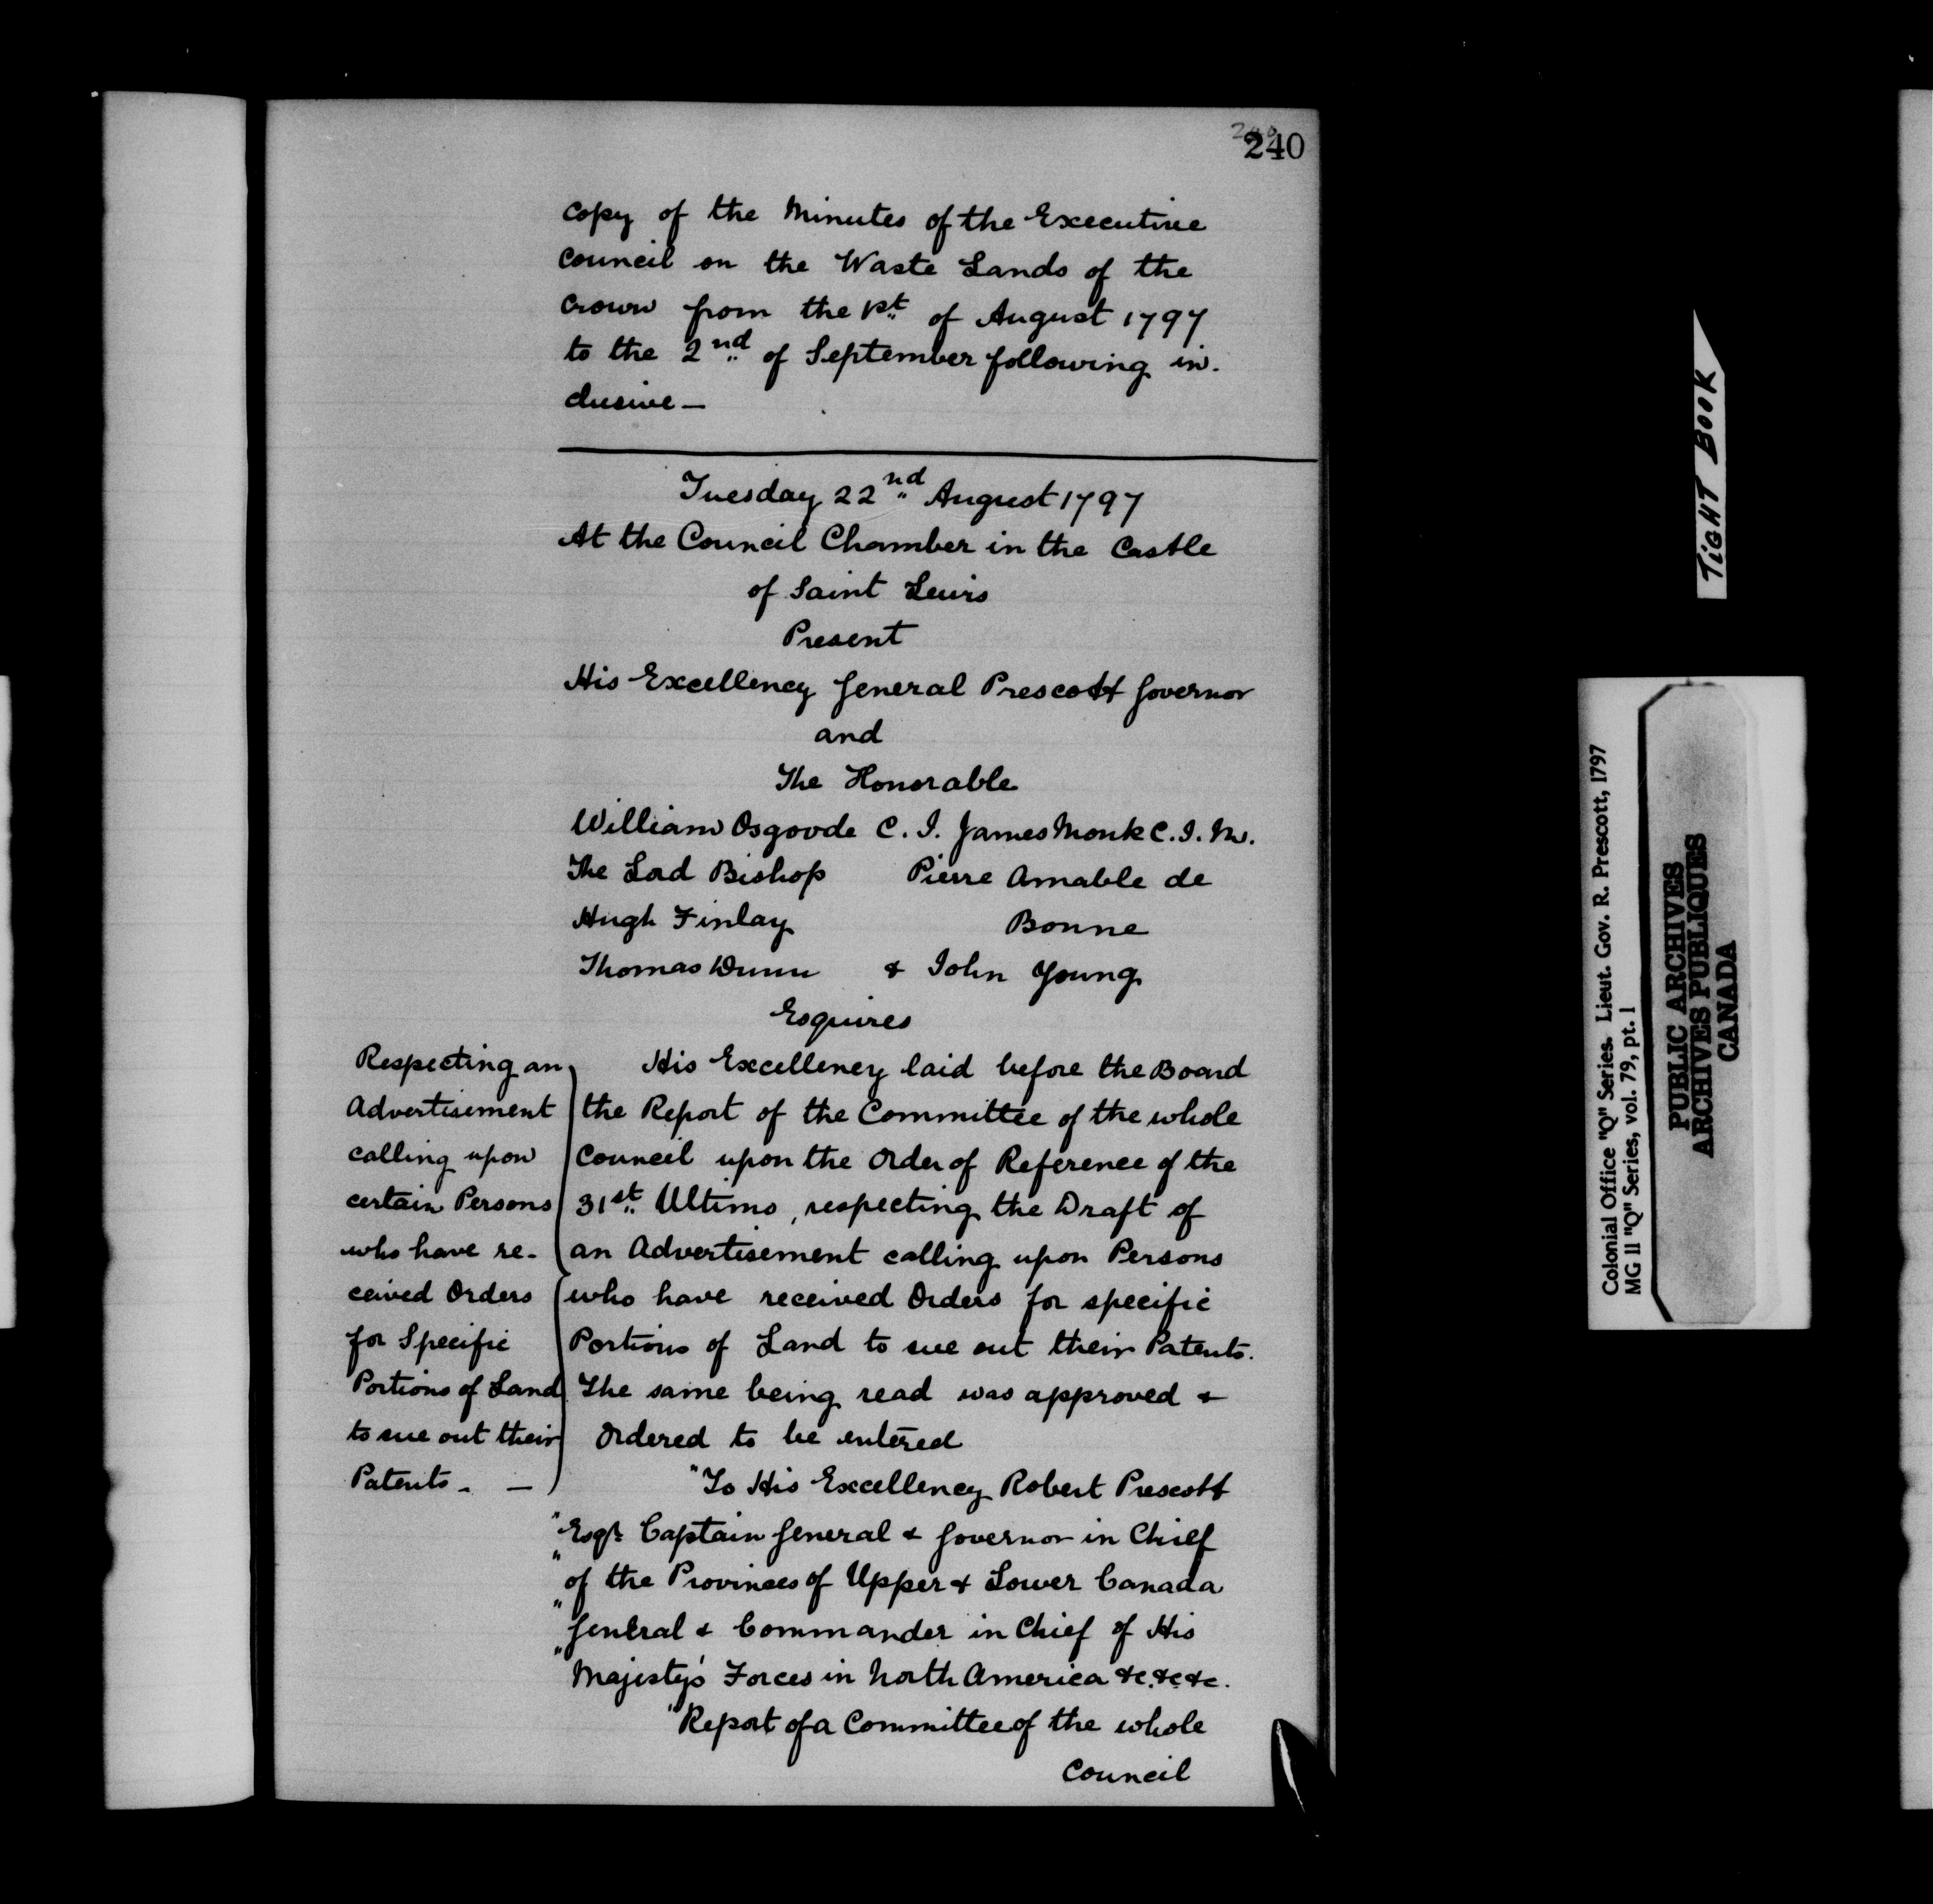 240
Copy of the Minutes of the Executive
Council on the Waste Lands of the
Crown from the 1st of August 1797
to the 2nd of September following in-
clusive —
Tuesday 22nd August 1797
At the Council Chamber in the Castle
of Saint Lewis
Present
His Excellency General Prescott Governor
and
The Honorable
William Osgoode C. J. James Monk C. J. M.
The Lord Bishop Pierre Amable de
Hugh Finlay Bonne
Thomas Dunn & John Young
Esquires
Respecting an
Advertisement
calling upon
certain Persons
who have re-
ceived Orders
for Specific
Portions of Land
to sue out their
Patents. —
His Excellency laid before the Board
the Report of the Committee of the whole
Council upon the Order of Reference of the
31st Ultimo, respecting the Draft of
an Advertisement calling upon Persons
who have received Orders for specific
Portions of Land to sue out their Patents.
The same being read was approved &
Ordered to be entered
"To His Excellency Robert Prescott
"Esqr. Captain General & Governor in Chief
"of the Provinces of Upper & Lower Canada
"General & Commander in Chief of His
"Majesty's Forces in North America &c. &c. &c.
"Report of a Committee of the whole
Council
TIGHT BOOK
Colonial Office "Q" Series. Lieut. Gov. R. Prescott, 1797
MG 11 "Q" Series, vol. 79, pt. 1
PUBLIC ARCHIVES
ARCHIVES PUBLIQUES
CANADA